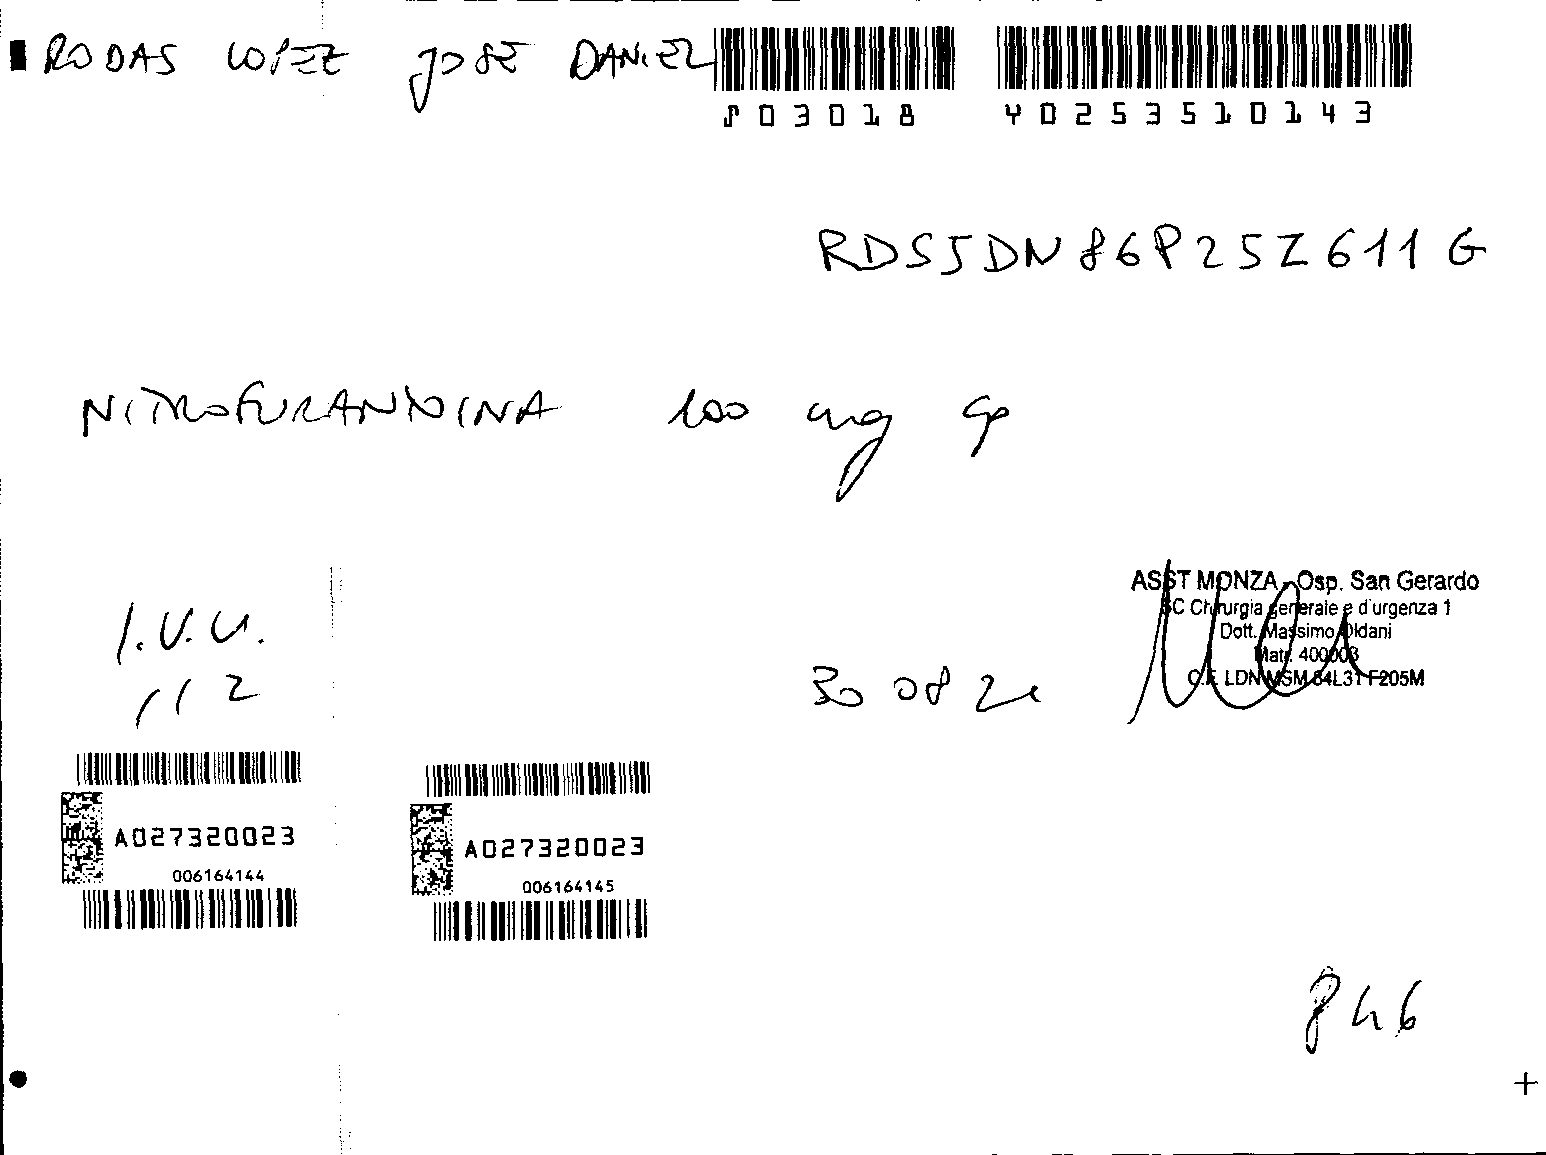 RODAS LOPEZ JOSE DANIEL
03018 Y0253510143
RDSJDN86P25Z611G
NITROFURANTOINA 100 mg cp
I.V.U.
ASST MONZA - Osp. San Gerardo
SC Chirurgia generale e d'urgenza 1
Dott. Massimo Oldani
Matr. 400003
C.F. LDN MSM 64L31 F205M
30 08 21
A027320023
006164144
A027320023
006164145
846